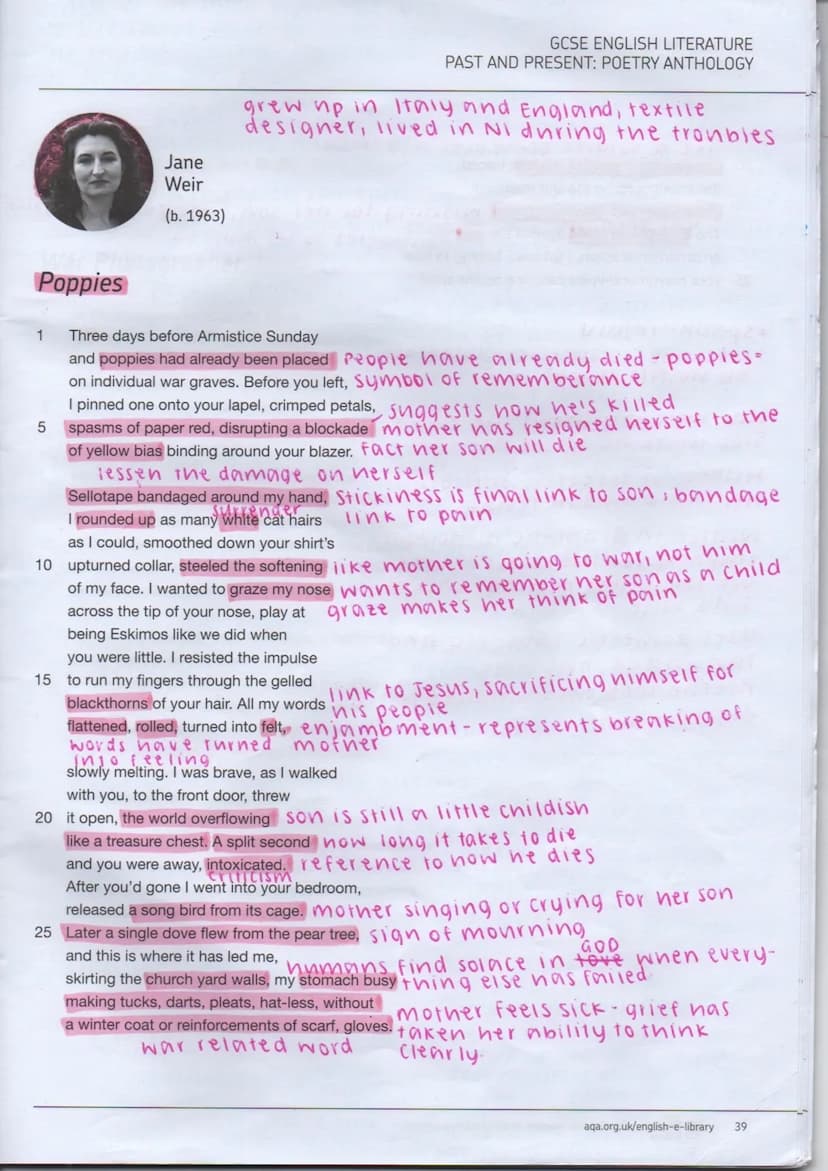 GCSE ENGLISH LITERATURE
PAST AND PRESENT: POETRY ANTHOLOGY
grew up in Italy and England, textile
designer, lived in NI during the troubles
Jane
Weir
(b. 1963)
Poppies
1 Three days before Armistice Sunday
and poppies had already been placed People have already died - poppies =
on individual war graves. Before you left, symbol of rememberance
I pinned one onto your lapel, crimped petals, suggests how he's killed
5 spasms of paper red, disrupting a blockade mother has resigned herself to the
of yellow bias binding around your blazer. fact her son will die
lessen the damage on herself
Sellotape bandaged around my hand, stickiness is final link to son ; bandage
surrender
I rounded up as many white cat hairs link to pain
as I could, smoothed down your shirt's
10 upturned collar, steeled the softening like mother is going to war, not him
of my face. I wanted to graze my nose wants to remember her son as a child
across the tip of your nose, play at graze makes her think of pain
being Eskimos like we did when
you were little. I resisted the impulse
15 to run my fingers through the gelled
blackthorns of your hair. All my words link to Jesus, sacrificing himself for
his people
flattened, rolled, turned into felt, enjambment - represents breaking of
words have turned mother
into feeling
slowly melting. I was brave, as I walked
with you, to the front door, threw
20 it open, the world overflowing son is still a little childish
like a treasure chest. A split second how long it takes to die
and you were away, intoxicated. reference to how he dies
criticism
After you'd gone I went into your bedroom,
released a song bird from its cage. mother singing or crying for her son
25 Later a single dove flew from the pear tree, sign of mourning
GOD
and this is where it has led me, humans find solace in love when every-
skirting the church yard walls, my stomach busy thing else has failed
making tucks, darts, pleats, hat-less, without mother feels sick - grief has
a winter coat or reinforcements of scarf, gloves. taken her ability to think
war related word clearly.
aqa.org.uk/english-e-library 39